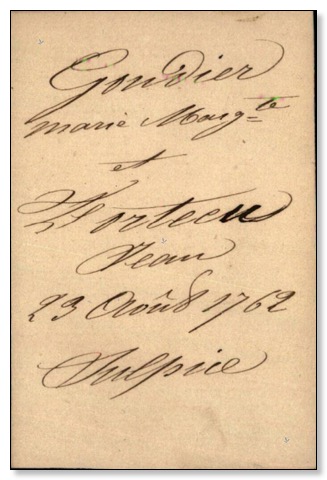 Gourdier
marie Marg=te
et
Jean
23 Août 1762
Sulpice